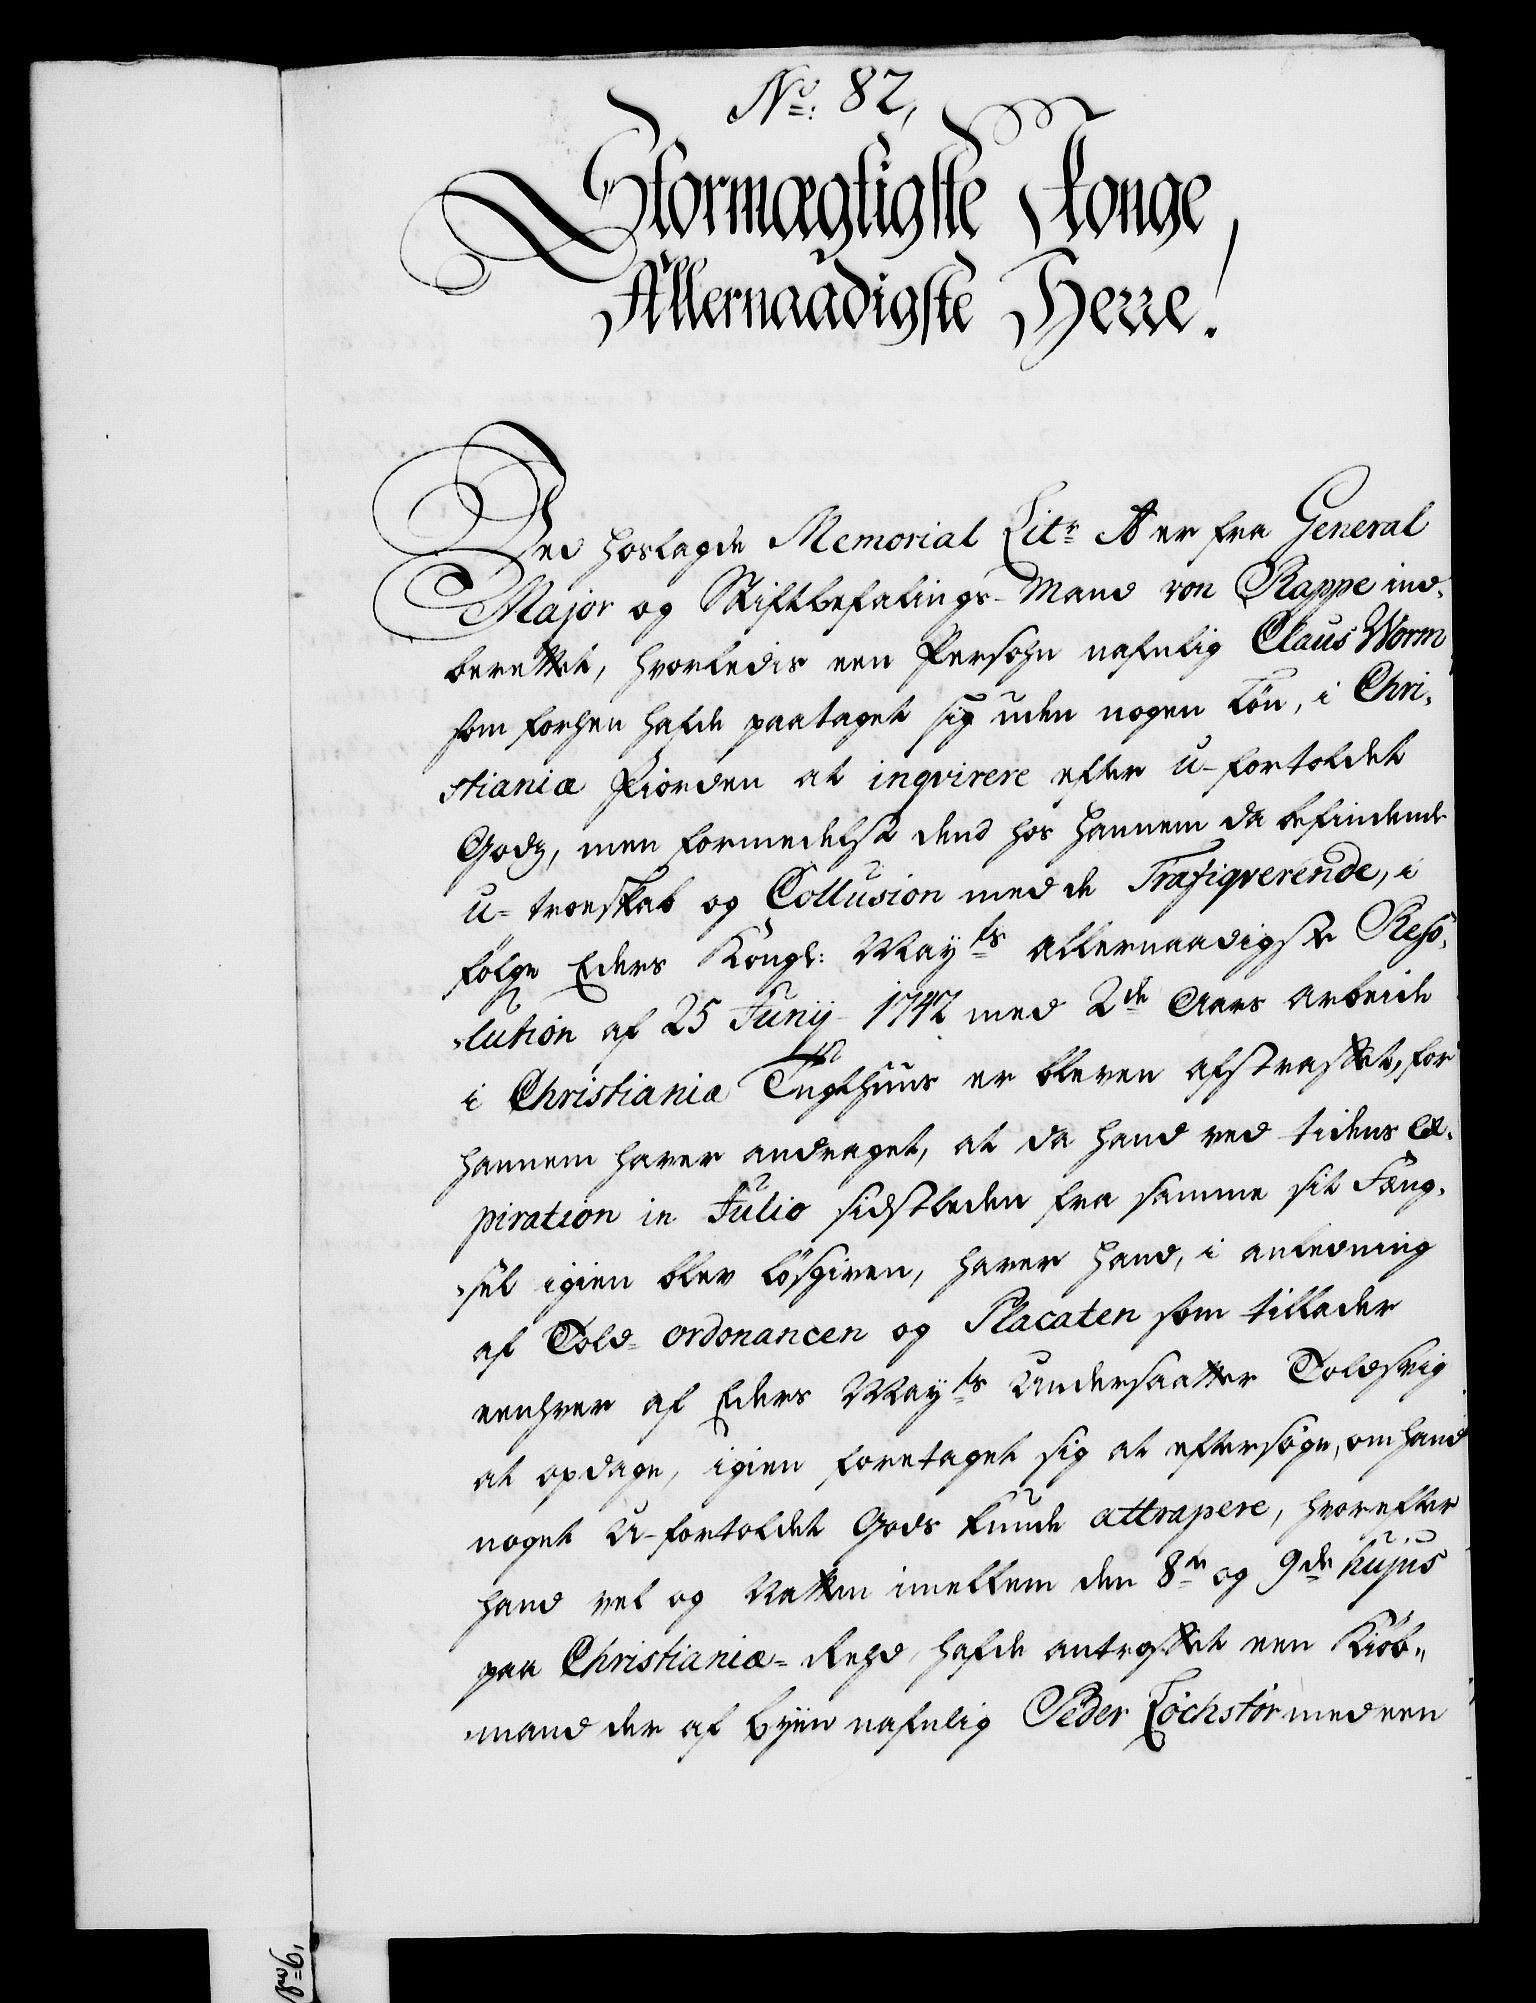 No: 82,
Stormægtigste Konge,
Allernaadigste Herre!
Ved hoslagde Memorial Litr A er fra General
Major og Stiftbefalings-Mand von Rappe ind-
berettet, hvorledis een Persohn nafnlig Claus Worm
som forhen hafde paataget sig uden nogen Løn, i Chri-
stiania Fiorden at inqvirere efter u-fortoldet
Godz, men formedelst dend hos hannem da befindende
u-troeskab og Collusion med de Trafiqverende, i
følge Eders Kongl: Mayts allernaadigste Reso-
lution af 25 Junij 1742 med 2de Aars arbeide
i Christiania Tugthuus er bleven afstraffet, for
hannem haver andraget, at da hand ved tidens Ex-
piration in Julio sidstleden fra samme sit Fæng-
sel igien blev løsgiven, haver hand, i anledning
af Told-ordonancen og Placaten som tillader
eenhver af Eders Mayts Undersaatter Toldsvig
at opdage, igien foretaget sig at eftersøge, om hand
noget U-fortoldet Gods kunde attrapere, hvorefter
hand vel og Natten imellem den 8de og 9de hujus
paa Christiania-Rehd hafde antroffet een Kiøb-
mand der af byen nafnlig Peder Lochstør med een